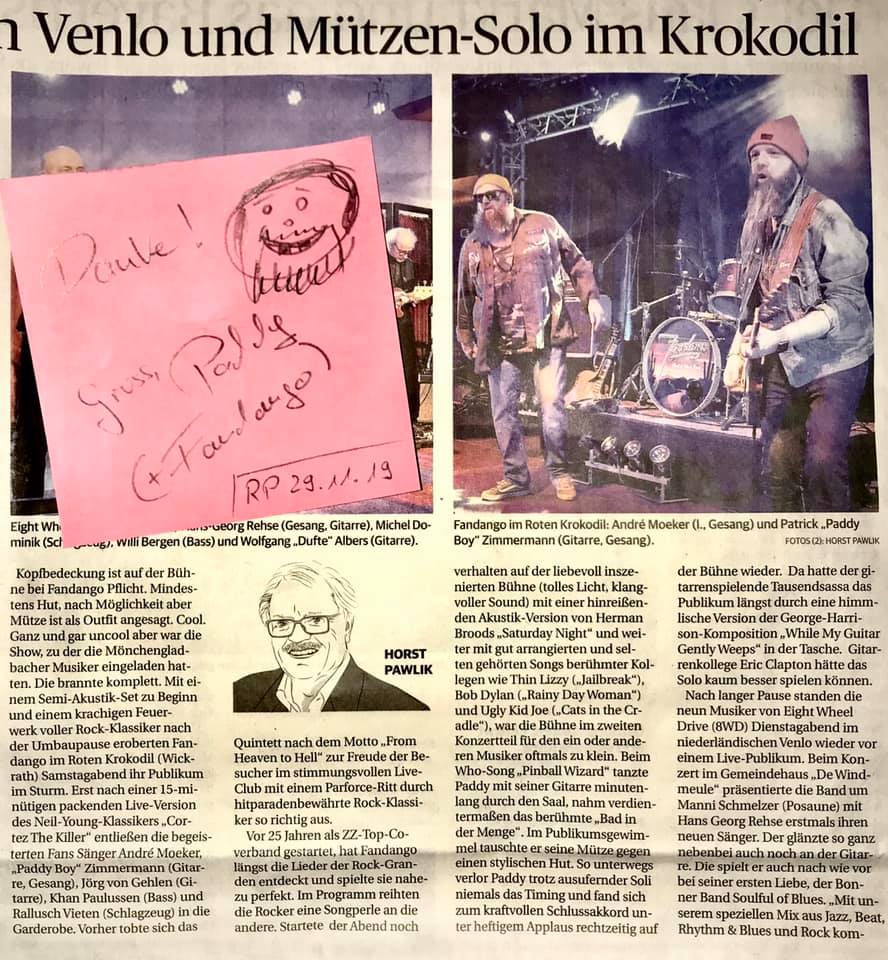 n Venlo und Mützen-Solo im Krokodil
Danke!
Gruss, Paddy
(+Fandango)
RP 29.11.19
Eight Wh
-Georg Rehse (Gesang, Gitarre), Michel Do-
minik (Sch
), Willi Bergen (Bass) und Wolfgang „Dufte“ Albers (Gitarre).
Fandango im Roten Krokodil: André Moeker (l., Gesang) und Patrick „Paddy
Boy“ Zimmermann (Gitarre, Gesang).
FOTOS (2): HORST PAWLIK
Kopfbedeckung ist auf der Büh-
ne bei Fandango Pflicht. Mindes-
tens Hut, nach Möglichkeit aber
Mütze ist als Outfit angesagt. Cool.
Ganz und gar uncool aber war die
Show, zu der die Mönchenglad-
bacher Musiker eingeladen hat-
ten. Die brannte komplett. Mit ei-
nem Semi-Akustik-Set zu Beginn
und einem krachigen Feuer-
werk voller Rock-Klassiker nach
der Umbaupause eroberten Fan-
dango im Roten Krokodil (Wick-
rath) Samstagabend ihr Publikum
im Sturm. Erst nach einer 15-mi-
nütigen packenden Live-Version
des Neil-Young-Klassikers „Cor-
tez The Killer“ entließen die begeis-
terten Fans Sänger André Moeker,
„Paddy Boy“ Zimmermann (Gitar-
re, Gesang), Jörg von Gehlen (Gi-
tarre), Khan Paulussen (Bass) und
Rallusch Vieten (Schlagzeug) in die
Garderobe. Vorher tobte sich das
HORST
PAWLIK
Quintett nach dem Motto „From
Heaven to Hell“ zur Freude der Be-
sucher im stimmungsvollen Live-
Club mit einem Parforce-Ritt durch
hitparadenbewährte Rock-Klassi-
ker so richtig aus.
Vor 25 Jahren als ZZ-Top-Co-
verband gestartet, hat Fandango
längst die Lieder der Rock-Gran-
den entdeckt und spielte sie nahe-
zu perfekt. Im Programm reihten
die Rocker eine Songperle an die
andere. Startete der Abend noch
verhalten auf der liebevoll insze-
nierten Bühne (tolles Licht, klang-
voller Sound) mit einer hinreißen-
den Akustik-Version von Herman
Broods „Saturday Night“ und wei-
ter mit gut arrangierten und sel-
ten gehörten Songs berühmter Kol-
legen wie Thin Lizzy („Jailbreak“),
Bob Dylan („Rainy Day Woman“)
und Ugly Kid Joe („Cats in the Cr-
adle“), war die Bühne im zweiten
Konzertteil für den ein oder ande-
ren Musiker oftmals zu klein. Beim
Who-Song „Pinball Wizard“ tanzte
Paddy mit seiner Gitarre minuten-
lang durch den Saal, nahm verdien-
termaßen das berühmte „Bad in
der Menge“. Im Publikumsgewim-
mel tauschte er seine Mütze gegen
einen stylischen Hut. So unterwegs
verlor Paddy trotz ausufernder Soli
niemals das Timing und fand sich
zum kraftvollen Schlussakkord un-
ter heftigem Applaus rechtzeitig auf
der Bühne wieder. Da hatte der gi-
tarrenspielende Tausendsassa das
Publikum längst durch eine himm-
lische Version der George-Harri-
son-Komposition „While My Guitar
Gently Weeps“ in der Tasche. Gitar-
renkollege Eric Clapton hätte das
Solo kaum besser spielen können.
Nach langer Pause standen die
neun Musiker von Eight Wheel
Drive (8WD) Dienstagabend im
niederländischen Venlo wieder vor
einem Live-Publikum. Beim Kon-
zert im Gemeindehaus „De Wind-
meule“ präsentierte die Band um
Manni Schmelzer (Posaune) mit
Hans Georg Rehse erstmals ihren
neuen Sänger. Der glänzte so ganz
nebenbei auch noch an der Gitar-
re. Die spielt er auch nach wie vor
bei seiner ersten Liebe, der Bon-
ner Band Soulful of Blues. „Mit un-
serem speziellen Mix aus Jazz, Beat,
Rhythm & Blues und Rock kom-